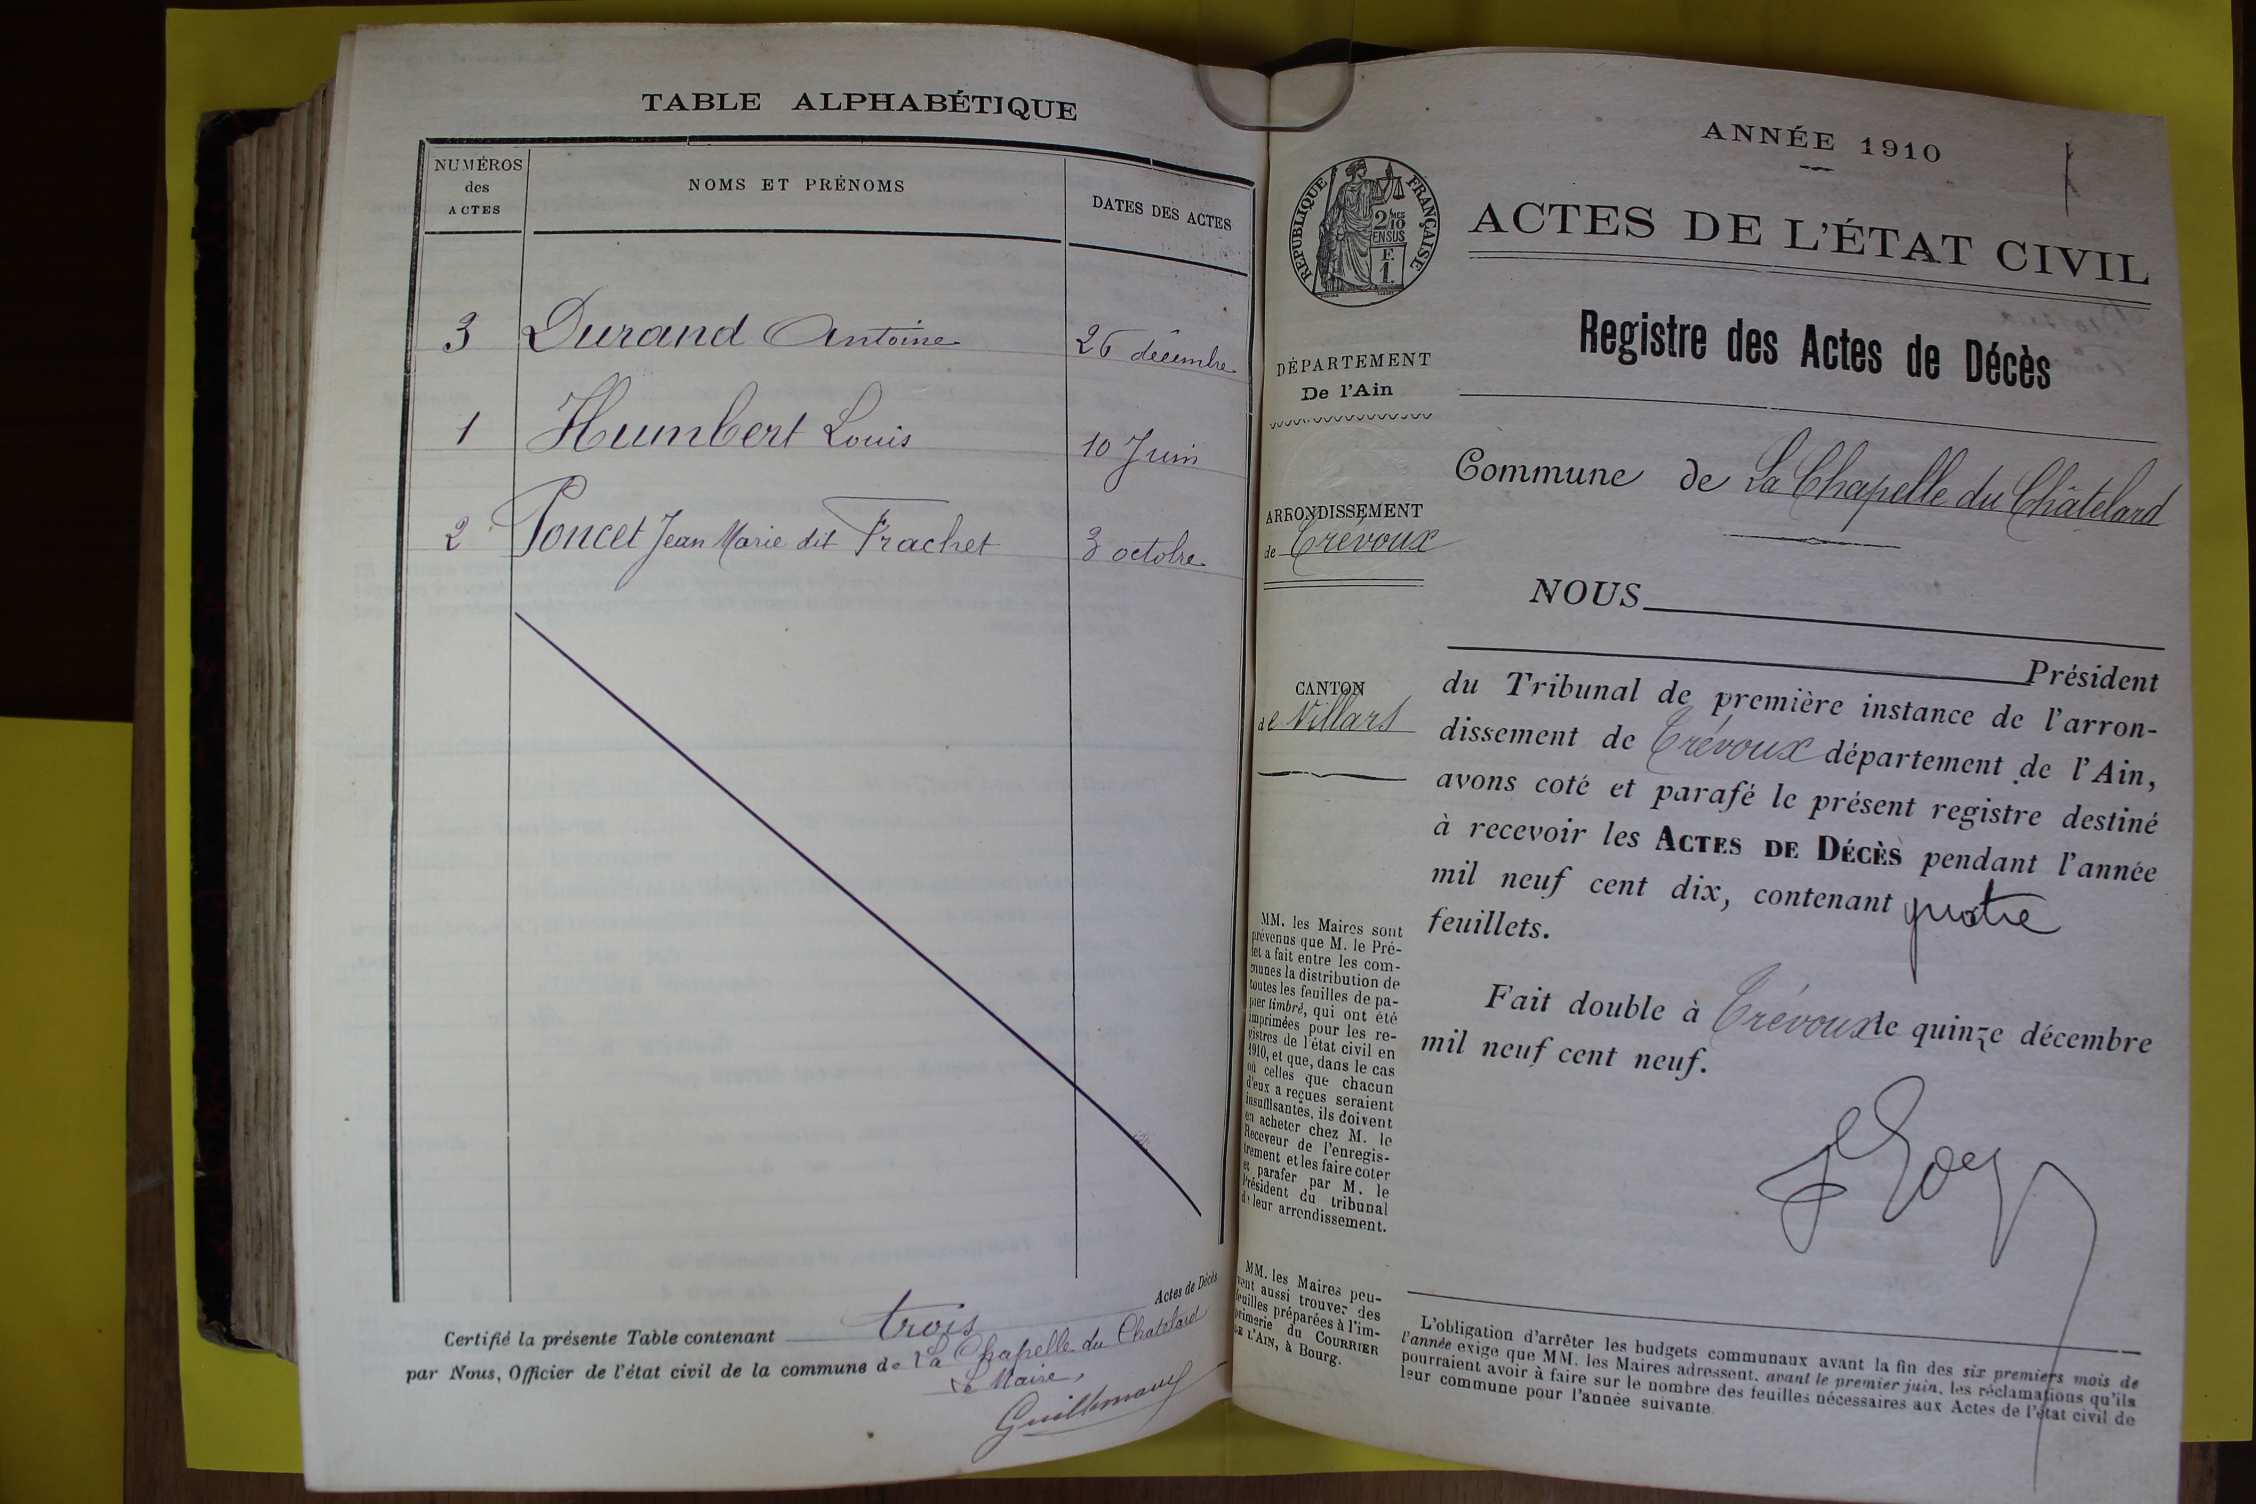 TABLE ALPHABÉTIQUE
NUMÉROS
des
ACTES
NOMS ET PRÉNOMS
DATES DES ACTES
3 Durand Antoine 26 décembre
1 Humbert Louis 10 Juin
2 Poncet Jean Marie dit Frachet 3 octobre
Certifié la présente Table contenant trois Actes de Décès
par Nous, Officier de l'état civil de la commune de La Chapelle du Chatelard
Le Maire,
ANNÉE 1910
ACTES DE L'ÉTAT CIVIL
RÉPUBLIQUE FRANÇAISE
2/10
EN SUS
F.
1.
Registre des Actes de Décès
DÉPARTEMENT
De l'Ain
Commune de La Chapelle du Châtelard
ARRONDISSEMENT
de Trévoux
NOUS
Président
CANTON
de Villars
du Tribunal de première instance de l'arron-
dissement de Trévoux département de l'Ain,
avons coté et parafé le présent registre destiné
à recevoir les ACTES DE DÉCÈS pendant l'année
mil neuf cent dix, contenant quatre
feuillets.
Fait double à Trévoux le quinze décembre
mil neuf cent neuf.
MM. les Maires sont
prévenus que M. le Pré-
fet a fait entre les com-
munes la distribution de
toutes les feuilles de pa-
pier timbré, qui ont été
imprimées pour les re-
gistres de l'état civil en
1910, et que, dans le cas
où celles que chacun
d'eux a reçues seraient
insuffisantes, ils doivent
en acheter chez M. le
Receveur de l'enregis-
trement et les faire coter
et parafer par M. le
Président du tribunal
de leur arrondissement.
MM. les Maires peu-
vent aussi trouver des
feuilles préparées à l'im-
primerie du COURRIER
DE L'AIN, à Bourg.
L'obligation d'arrêter les budgets communaux avant la fin des six premiers mois de
l'année exige que MM. les Maires adressent, avant le premier juin, les réclamations qu'ils
pourraient avoir à faire sur le nombre des feuilles nécessaires aux Actes de l'état civil de
leur commune pour l'année suivante.